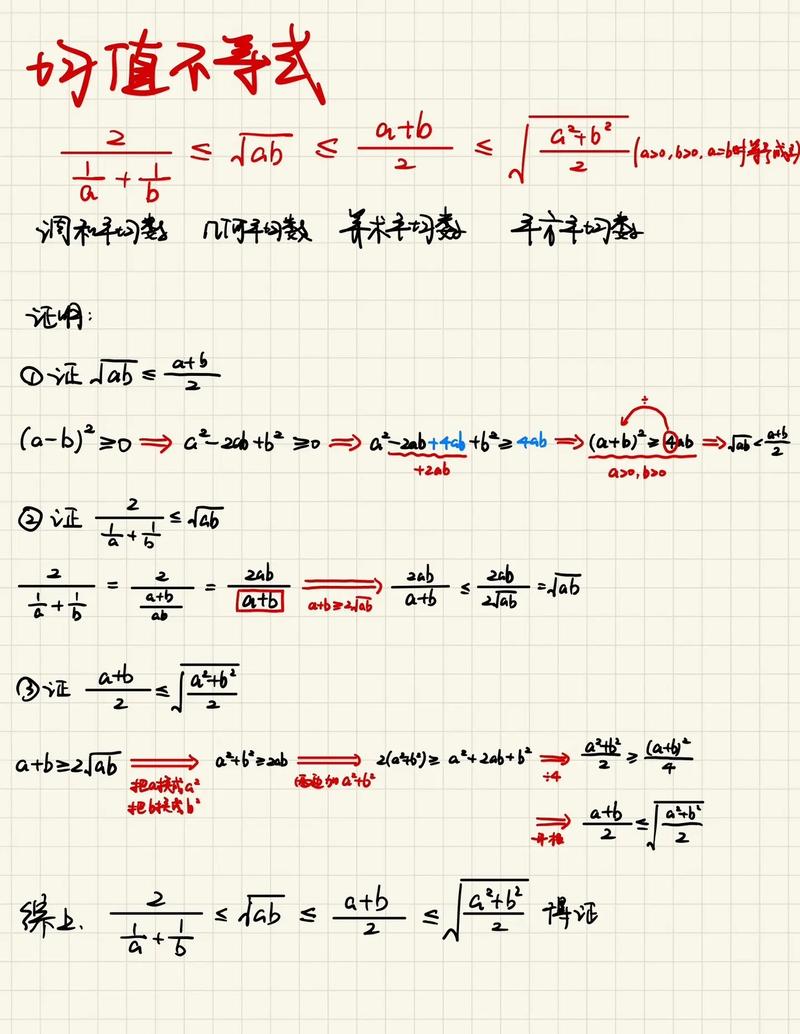 均值不等式
2/(1/a + 1/b) ≤ √ab ≤ (a+b)/2 ≤ √((a²+b²)/2) (a>0, b>0, a=b时等号成立)
调和平均数 几何平均数 算术平均数 平方平均数
证明:
① 证 √ab ≤ (a+b)/2
÷
(a-b)² ≥0 ⇒ a²-2ab+b² ≥0 ⇒ a²-2ab+4ab+b² ≥ 4ab ⇒ (a+b)² ≥ 4ab ⇒ √ab < (a+b)/2
+2ab a>0, b>0
② 证 2/(1/a + 1/b) ≤ √ab
2/(1/a + 1/b) = 2/((a+b)/ab) = 2ab/(a+b) ⇒ 2ab/(a+b) ≤ 2ab/(2√ab) = √ab
a+b≥2√ab
③ 证 (a+b)/2 ≤ √((a²+b²)/2)
a+b≥2√ab ⇒ a²+b²≥2ab ⇒ 2(a²+b²)≥ a²+2ab+b² ⇒ (a²+b²)/2 ≥ (a+b)²/4
把a换成a² 两边加a²+b² ÷4
把b换成b²
⇒ (a+b)/2 ≤ √((a²+b²)/2)
开根
综上, 2/(1/a + 1/b) ≤ √ab ≤ (a+b)/2 ≤ √((a²+b²)/2) 得证